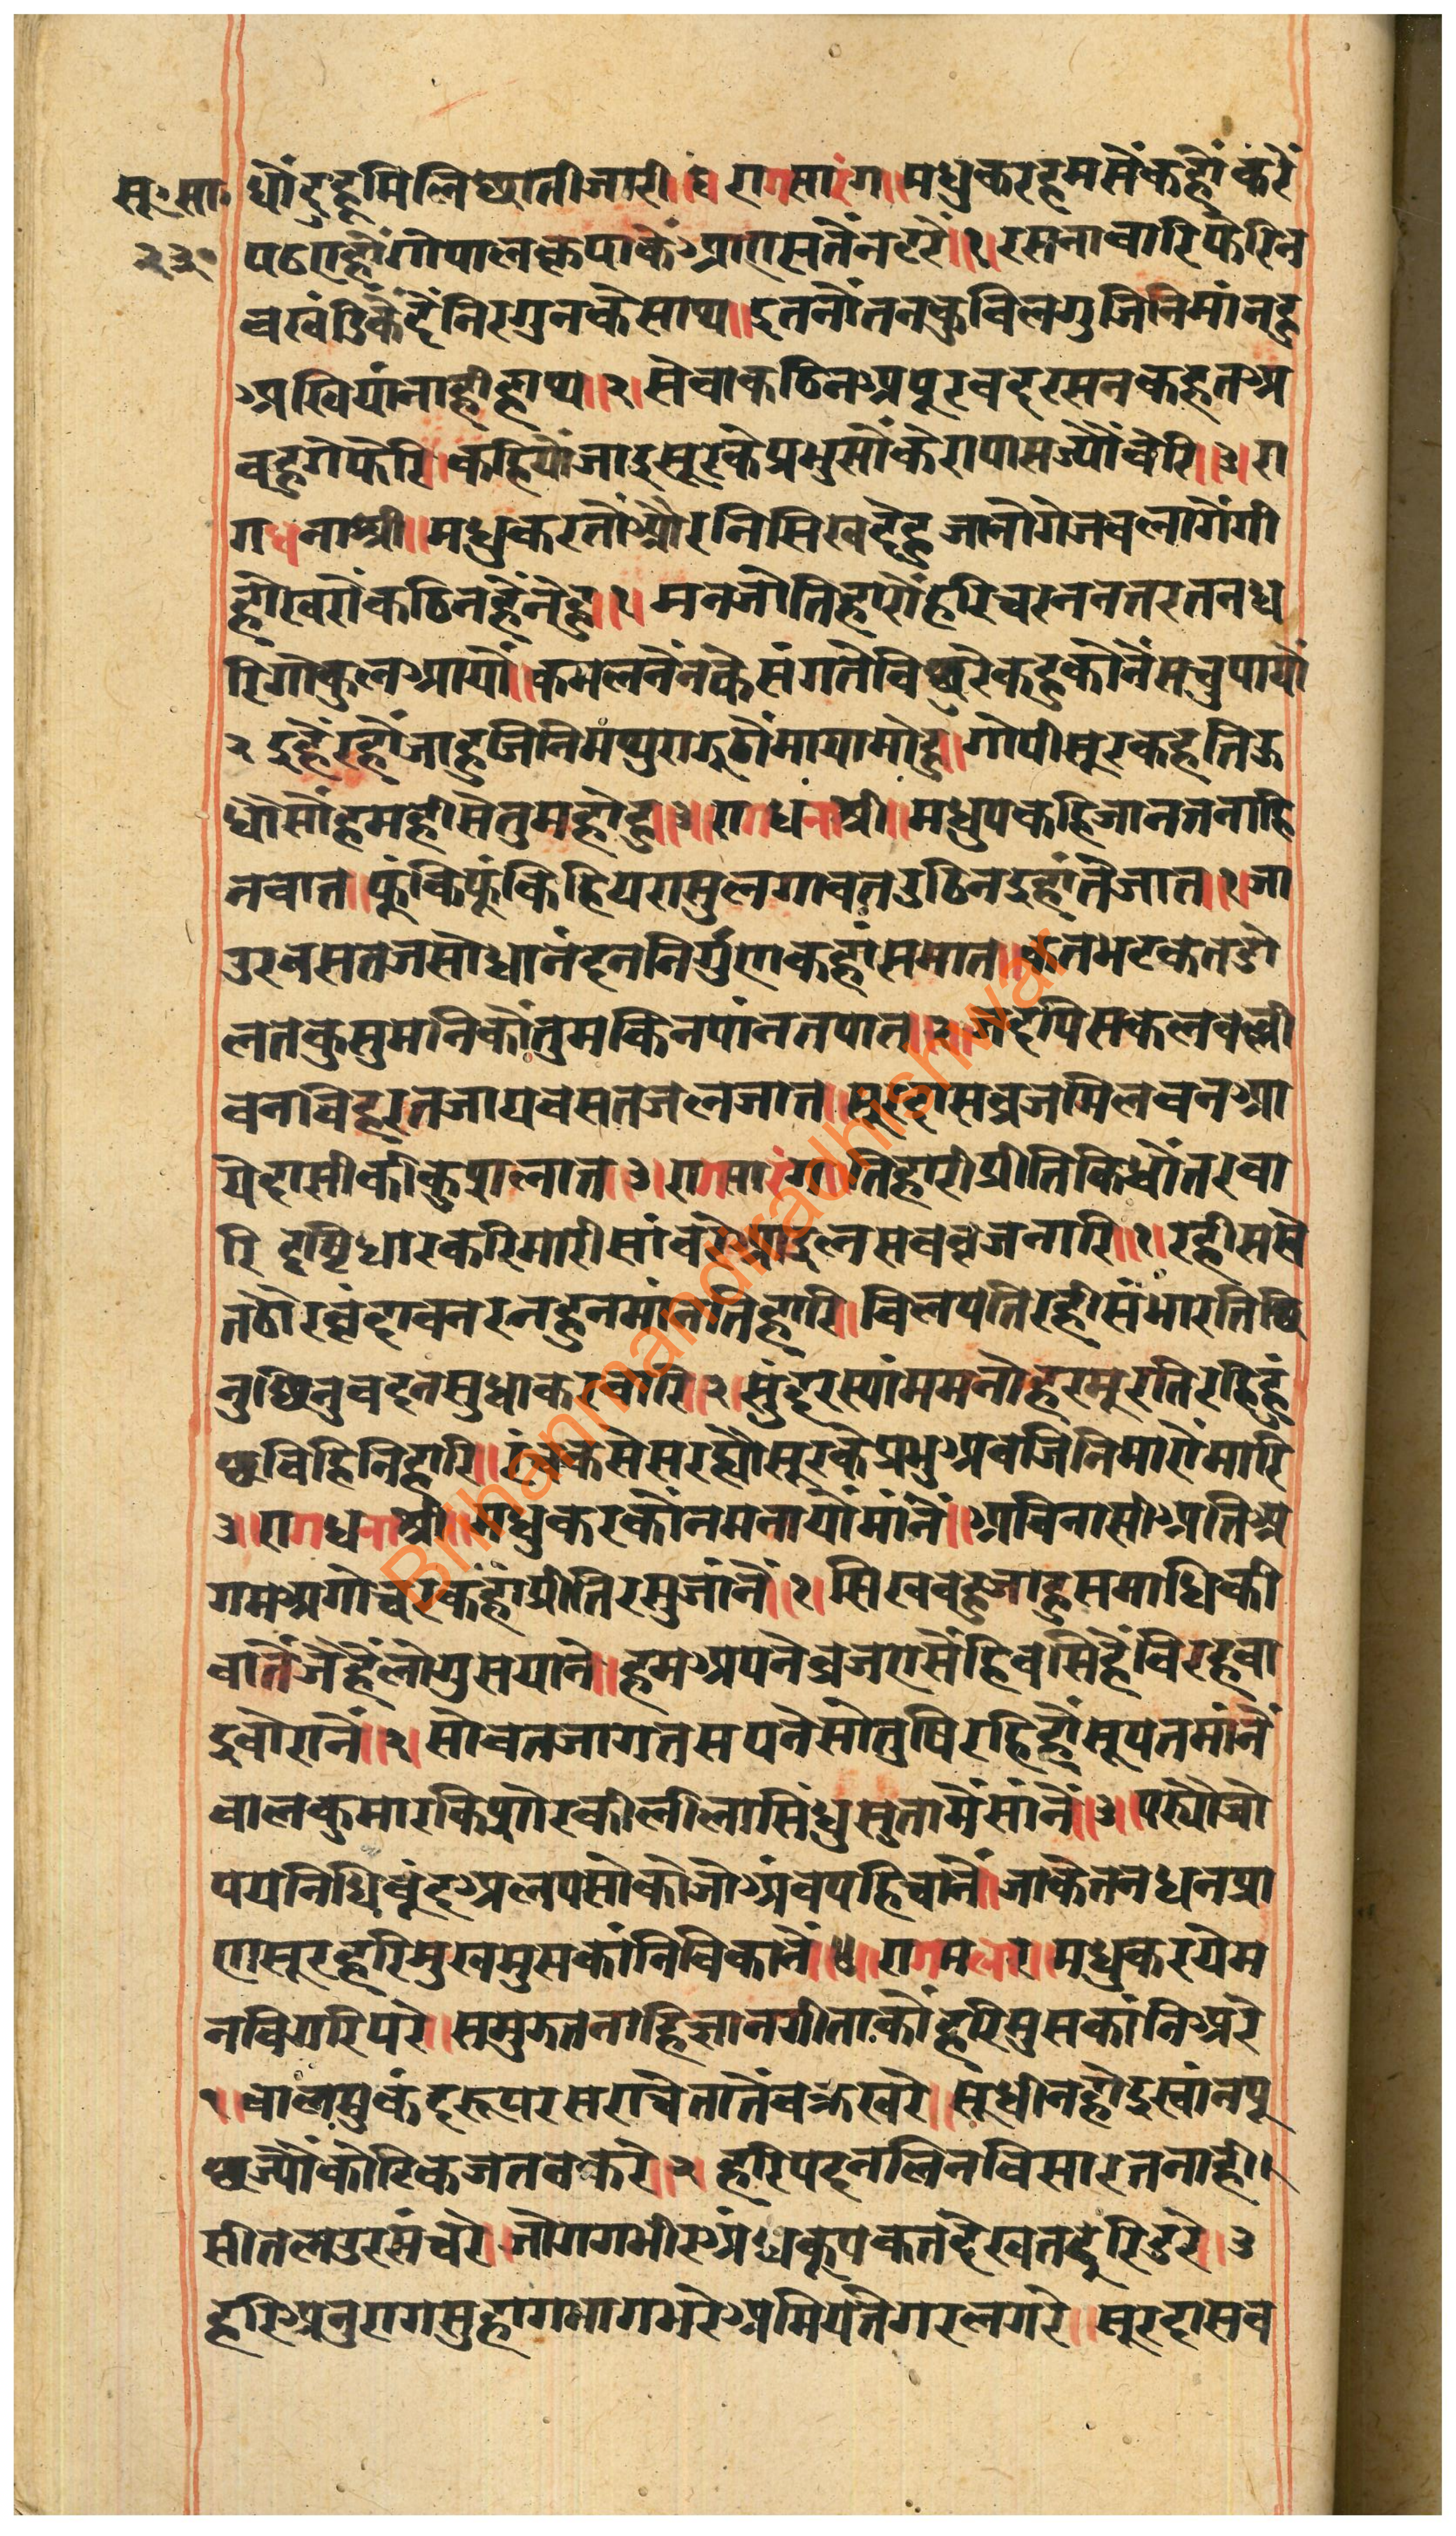 सू॰सा॰
२३०
धौंदुहूमिलिछातीजारी॥३ रागसारंग॥मधुकरहमसौंकहौंकरैं
पठएहौंगोपालकृपाकैंआएसतैंनटरैं॥१।रसनावारिफेरिन
वखंडिकैंदैंनिरगुनकैसाथ॥इतनौंतनकुविलगुजिनिमांनहु
अखियांनाहीहाथ॥२।सेवाकठिनअपूरवदरसनकहतअ
वहुगेफेरि।कहियौजाइसूरकेप्रभुसौंकेरापासज्यौंबेरि॥३।रा
गधनाश्री॥मधुकरतौंऔरनिसिखदेहुजानौगेजवलागैंगी
हौखरौंकठिनहैंनेहु॥१।मनजौतिहारौंहरिचरननतरतनध
रिगोकुलआयौं॥कमलनैंनकेसंगतैविछुरैकहुकौनैंसचुपायौं
२ इहैंरहौंजाहुजिनिमथुराझूठौंमायामोहु॥गोपीसूरकहतिऊ
धौसौंहमहीसेतुमहोहु॥३॥रागधनाश्री॥मधुपकहिजानतनाहि
नवात॥फूंकिफूंकिहियरासुलगावतउठिनइहांतैजात॥१।जा
उरवसतजसोधानंदननिर्गुंणकहांसमात॥कतभटकतडो
लतकुसुमनिकौंतुमकिनपांनतपात॥२।जदपिसकलवल्ली
वनविहरतजायवसतजलजात॥सूरदासव्रजमिलवनआ
येदासीकीकुशलात॥३।रागसारंग॥तिहारीप्रीतिकिधौंतरवा
रि दृष्टिधारकरिमारीसांवरेघाइलसवव्रजनारि॥१।रहीससे
तठौरव्रंदावनरनहुनमांनतिहारि॥विलपतिरहीसंभारतिछि
नुछिनुवदनसुधाकरवारि॥२।सुंदरस्यांममनोहरमूरतिरहिहुं
छविहिनिहारि॥रंचकसेसरह्यौसूरकेप्रभुअवजिनिमारौंमारि
३॥रागधनाश्री॥मधुकरकौंनमनायौंमांनैं॥अविनासीअतिअ
गमअगोचरकहांप्रीतिरसुजांनैं॥१।सिखवहुजाहुसमाधिकी
वातैंजैहैंलोगुसयाने॥हमअपनेव्रजएसैंहिवसिहैंविरहवा
इवौरानैं॥२।सोवतजागतसपनेसौतुषिरहिहौंसूपतमांनैं
वालकुमारकिशोरकीलीलासिंधुसुतामैंसांनैं॥३॥पर्‌यौजो
पयनिधिबूंदअलपसोकोजोअंवपहिचांनैं॥जाकेतनधनप्रा
णसूरहरिमुखमुसकांनिविकानैं॥४॥रागमलार॥मधुकरयेम
नविगरिपरे॥समुझतनाहिज्ञानगीताकौंहरिमुसकांनिअरे
१॥वालमुकंदरूपरसराचेतातैंवक्रखरे॥सूधीनहौइस्वांनपू
छज्यौंकोटिकजतनकरे॥२ हरिपदनलिनविसारतनाही।
सीतलउरसंचरे॥जोगगभीरअंधकूपकतदेखतदूरिडरे॥३
हरिअनुरागसुहागभागभरेअमियतैगरलगरे॥सूरदासव